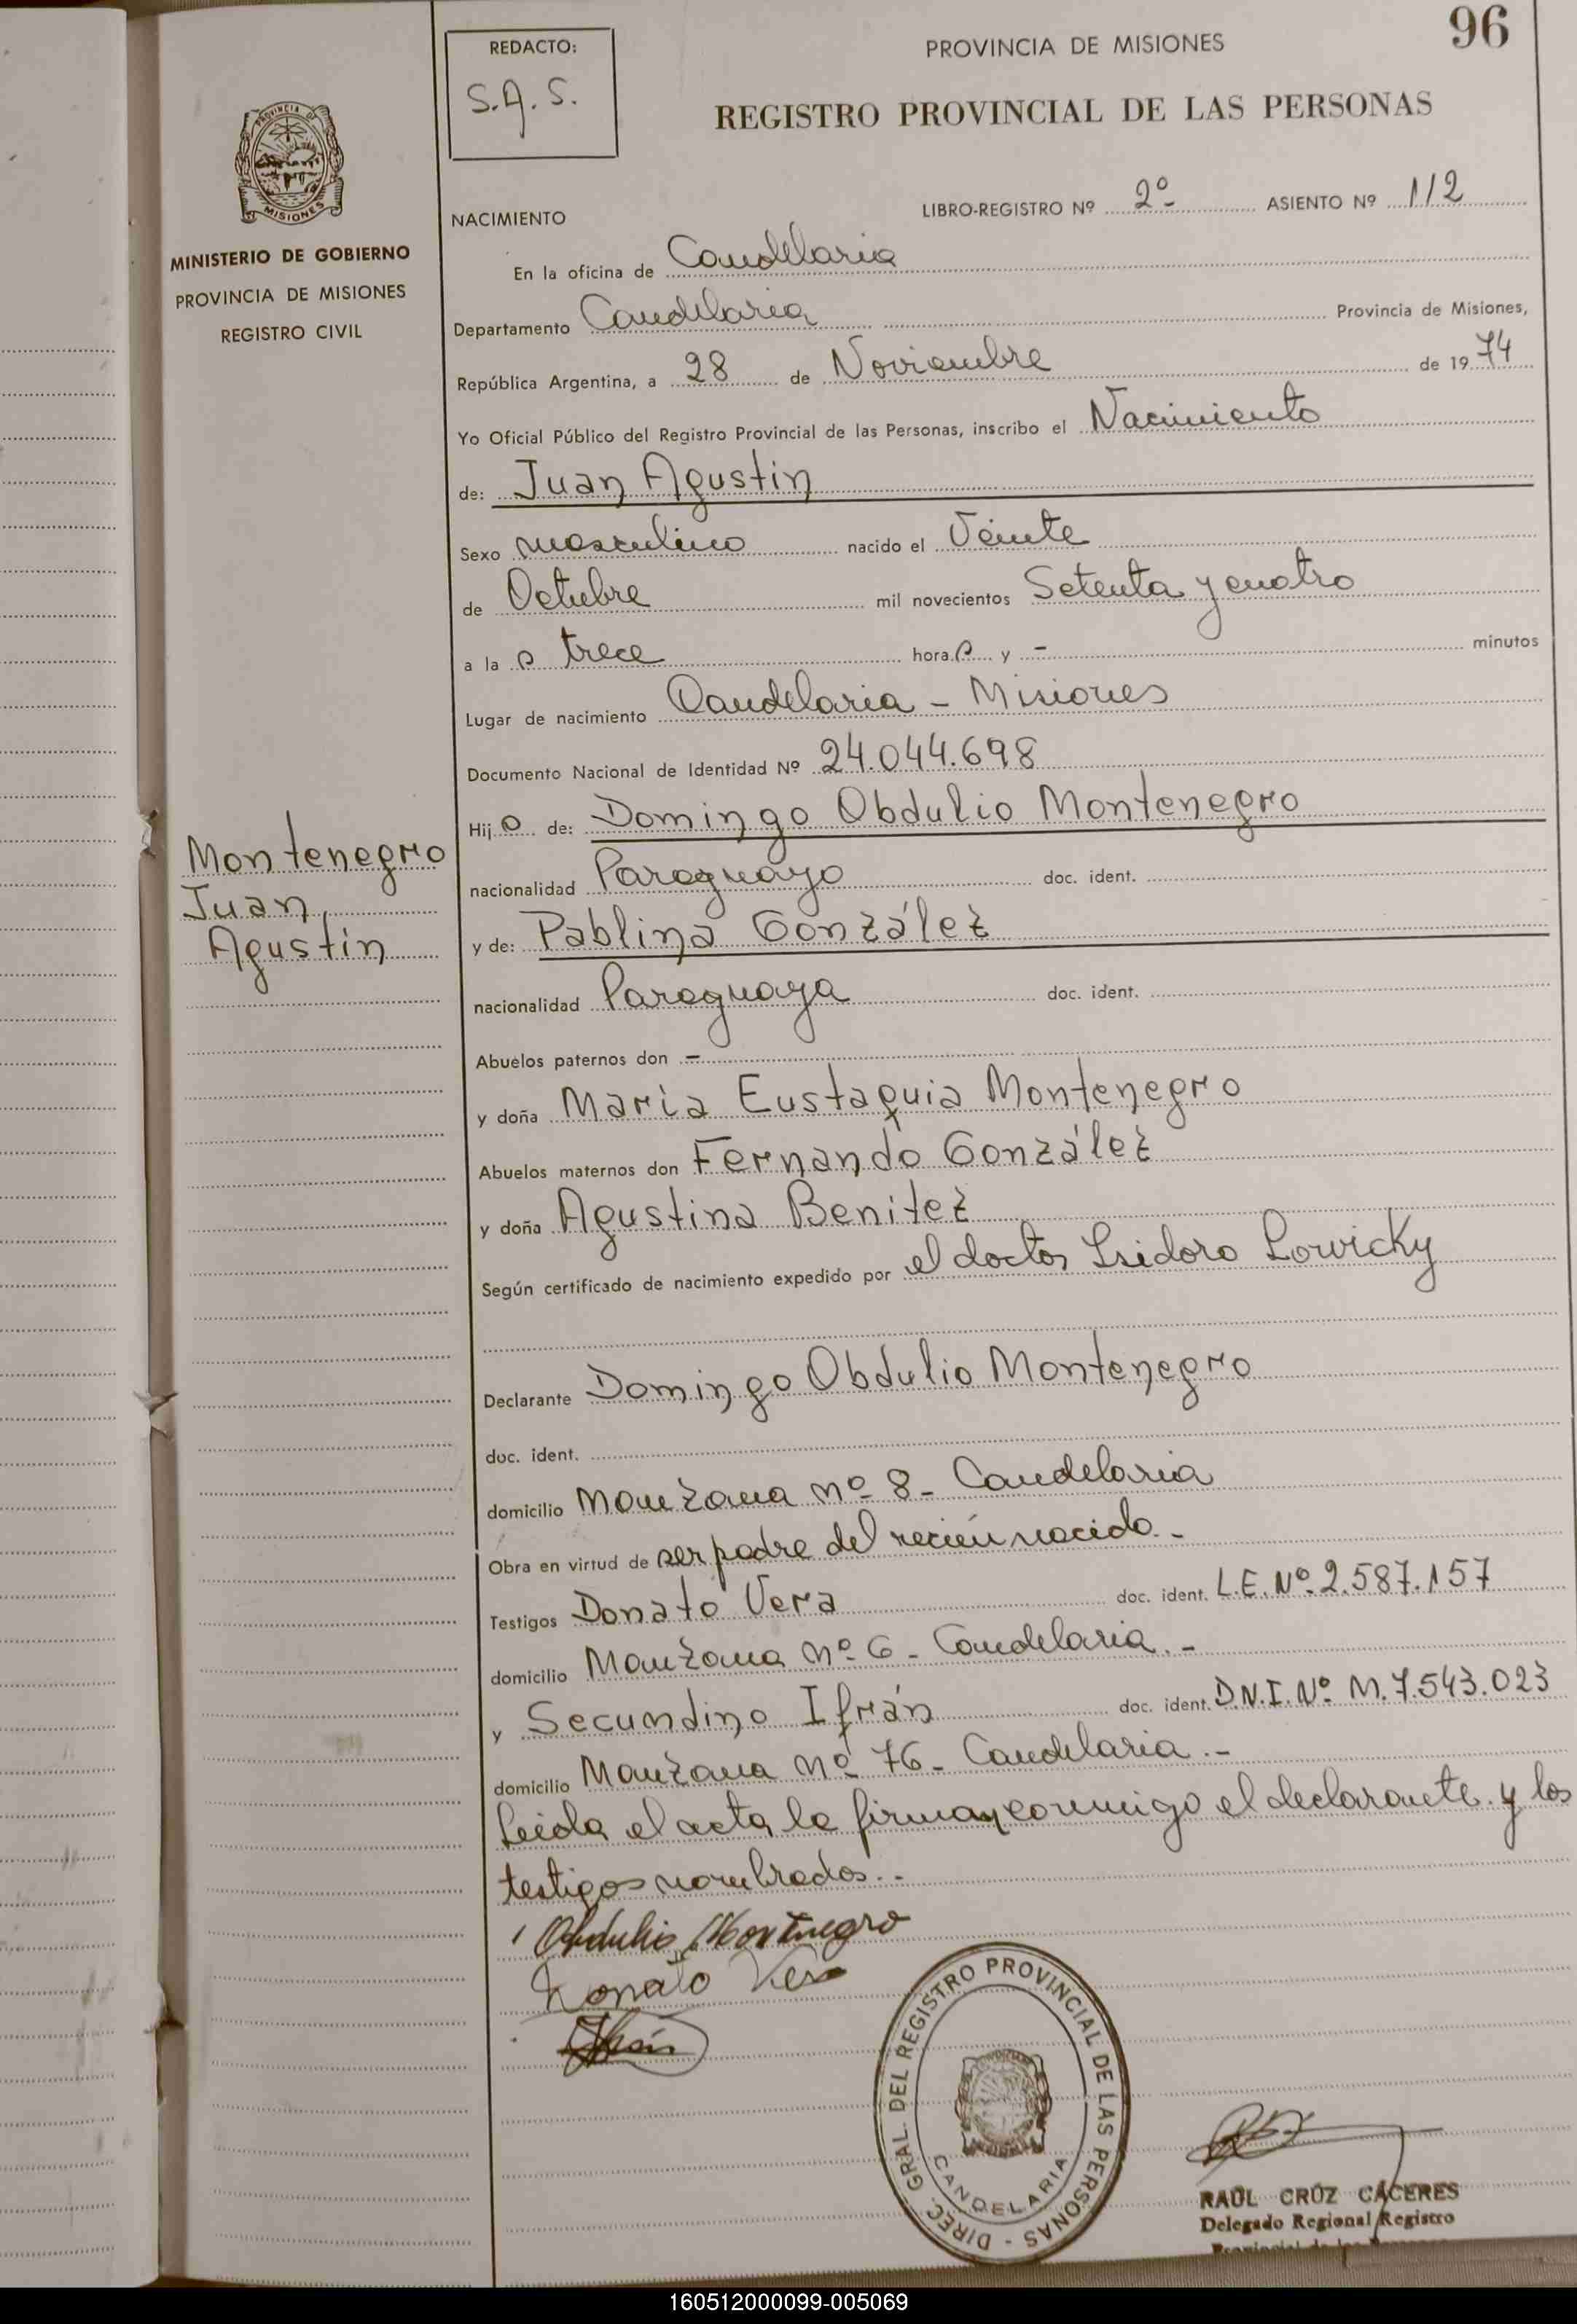 96
REDACTO:
S.A.S.
PROVINCIA DE MISIONES
REGISTRO PROVINCIAL DE LAS PERSONAS
PROVINCIA DE
MISIONES
MINISTERIO DE GOBIERNO
PROVINCIA DE MISIONES
REGISTRO CIVIL
NACIMIENTO
LIBRO-REGISTRO Nº 2º ASIENTO Nº 112
En la oficina de Candelaria
Departamento Candelaria Provincia de Misiones,
República Argentina, a 28 de Noviembre de 1974
Yo Oficial Público del Registro Provincial de las Personas, inscribo el Nacimiento
de: Juan Agustin
Sexo masculino nacido el Veinte
de Octubre mil novecientos Setenta y cuatro
a las trece horas y - minutos
Lugar de nacimiento Candelaria - Misiones
Documento Nacional de Identidad Nº 24.044.698
Hijo de: Domingo Obdulio Montenegro
Montenegro
Juan
Agustín
nacionalidad Paraguayo doc. ident.
y de: Pablina González
nacionalidad Paraguaya doc. ident.
Abuelos paternos don -
y doña María Eustaquia Montenegro
Abuelos maternos don Fernando González
y doña Agustina Benitez
Según certificado de nacimiento expedido por el doctor Isidoro Lowicky
Declarante Domingo Obdulio Montenegro
doc. ident.
domicilio Manzana nº 8 - Candelaria
Obra en virtud de ser padre del recién nacido.-
Testigos Donato Vera doc. ident. L.E. Nº 2.587.157
domicilio Manzana nº 6 - Candelaria.-
y Secundino Ifrán doc. ident. D.N.I. Nº M. 7.543.023
domicilio Manzana nº 76 - Candelaria.-
Leida el acta la firman conmigo el declarante y los
testigos nombrados.-
Obdulio Montenegro
Donato Vera
Ifrán
DIREC. GRAL. DEL REGISTRO PROVINCIAL DE LAS PERSONAS -
CANDELARIA
RAUL CRUZ CACERES
Delegado Regional Registro
Provincial de las Personas
160512000099-005069